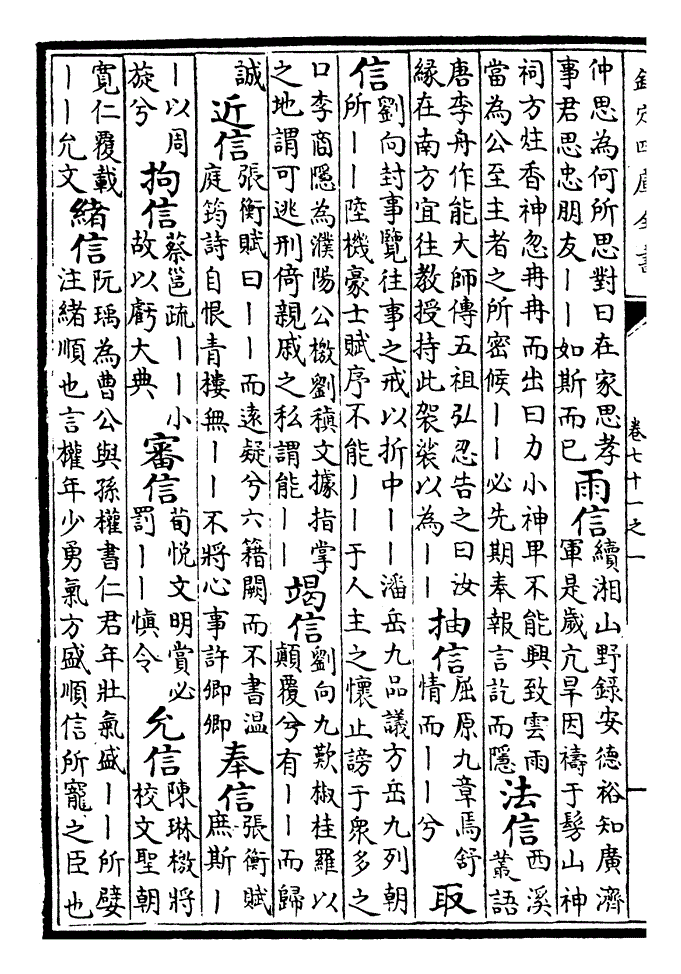 欽定四庫全書
卷七十一之一
仲思為何所思對曰在家思孝
事君思忠朋友丨丨如斯而已
雨信
續湘山野錄安德裕知廣濟
軍是歲亢旱因禱于髣山神
祠方炷香神忽冉冉而出曰力小神卑不能興致雲雨
當為公至主者之所密候丨丨必先期奉報言訖而隱
法信
西溪
叢語
唐李舟作能大師傳五祖弘忍告之曰汝
緣在南方宜往教授持此袈裟以為丨丨
抽信
屈原九章焉舒
情而丨丨兮
取
信
劉向封事覽往事之戒以折中丨丨潘岳九品議方岳九列朝
所丨丨陸機豪士賦序不能丨丨于人主之懷止謗于衆多之
口李商隱為濮陽公檄劉稹文據指掌
之地謂可逃刑倚親戚之私謂能丨丨
竭信
劉向九歎椒桂羅以
顛覆兮有丨丨而歸
誠
近信
張衡賦曰丨丨而遠疑兮六籍闕而不書温
庭筠詩自恨青樓無丨丨不將心事許卿卿
奉信
張衡賦
庶斯丨
丨以周
旋兮
拘信
蔡邕疏丨丨小
故以虧大典
審信
荀悅文明賞必
罰丨丨慎令
允信
陳琳檄將
校文聖朝
寬仁覆載
丨丨允文
緒信
阮瑀為曹公與孫權書仁君年壯氣盛丨丨所嬖
注緒順也言權年少勇氣方盛順信所寵之臣也